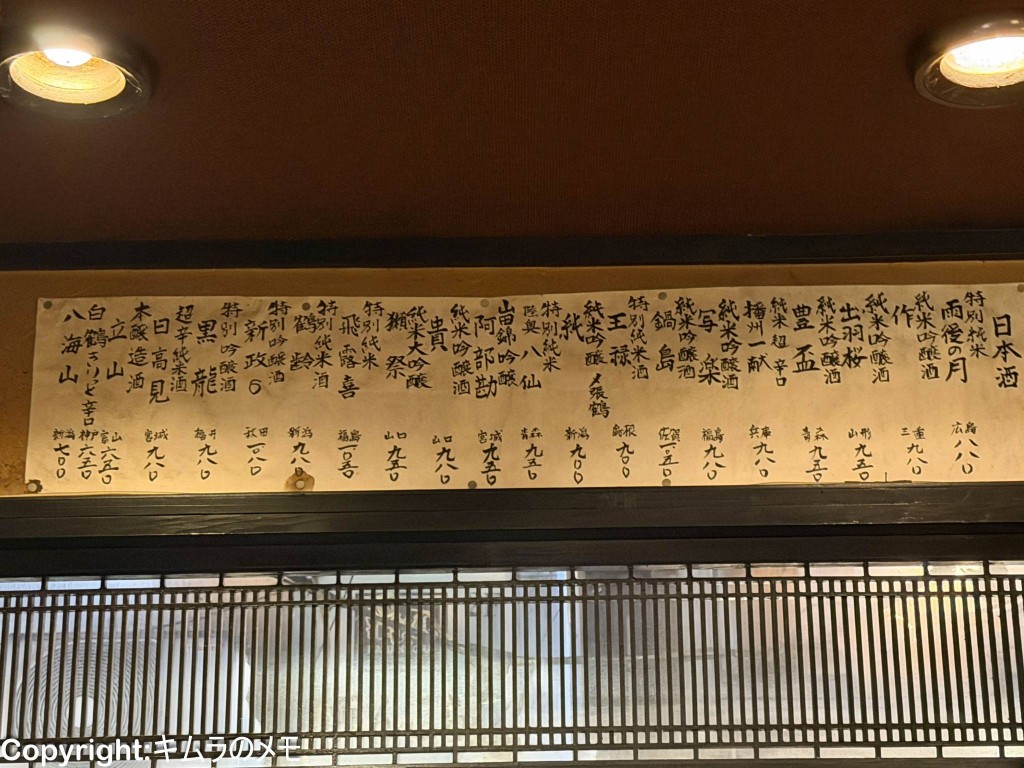 日本酒
特別純米
雨後の月
広島
八八〇
純米吟醸酒
作
三重
九八〇
純米吟醸酒
出羽桜
山形
九五〇
純米吟醸酒
豊盃
青森
九五〇
純米超辛口
播州一献
兵庫
九八〇
純米吟醸酒
写楽
福島
九八〇
純米吟醸酒
鍋島
佐賀
一〇五〇
特別純米酒
王祿
島根
九〇〇
純米吟醸
純
〆張鶴
新潟
九〇〇
特別純米
陸奥八仙
青森
九五〇
山田錦吟醸
阿部勘
宮城
九五〇
純米吟醸酒
貴
山口
九八〇
純米大吟醸
獺祭
山口
九五〇
特別純米
飛露喜
福島
一〇五〇
特別純米酒
鶴齢
新潟
九八〇
特別吟醸酒
新政6
秋田
一〇八〇
特別吟醸酒
黒龍
福井
九八〇
超辛純米酒
日高見
宮城
九八〇
本醸造酒
立山
富山
六五〇
白鶴きりっと辛口
神戸
六五〇
八海山
新潟
七〇〇
Copyright:キムラのメモ